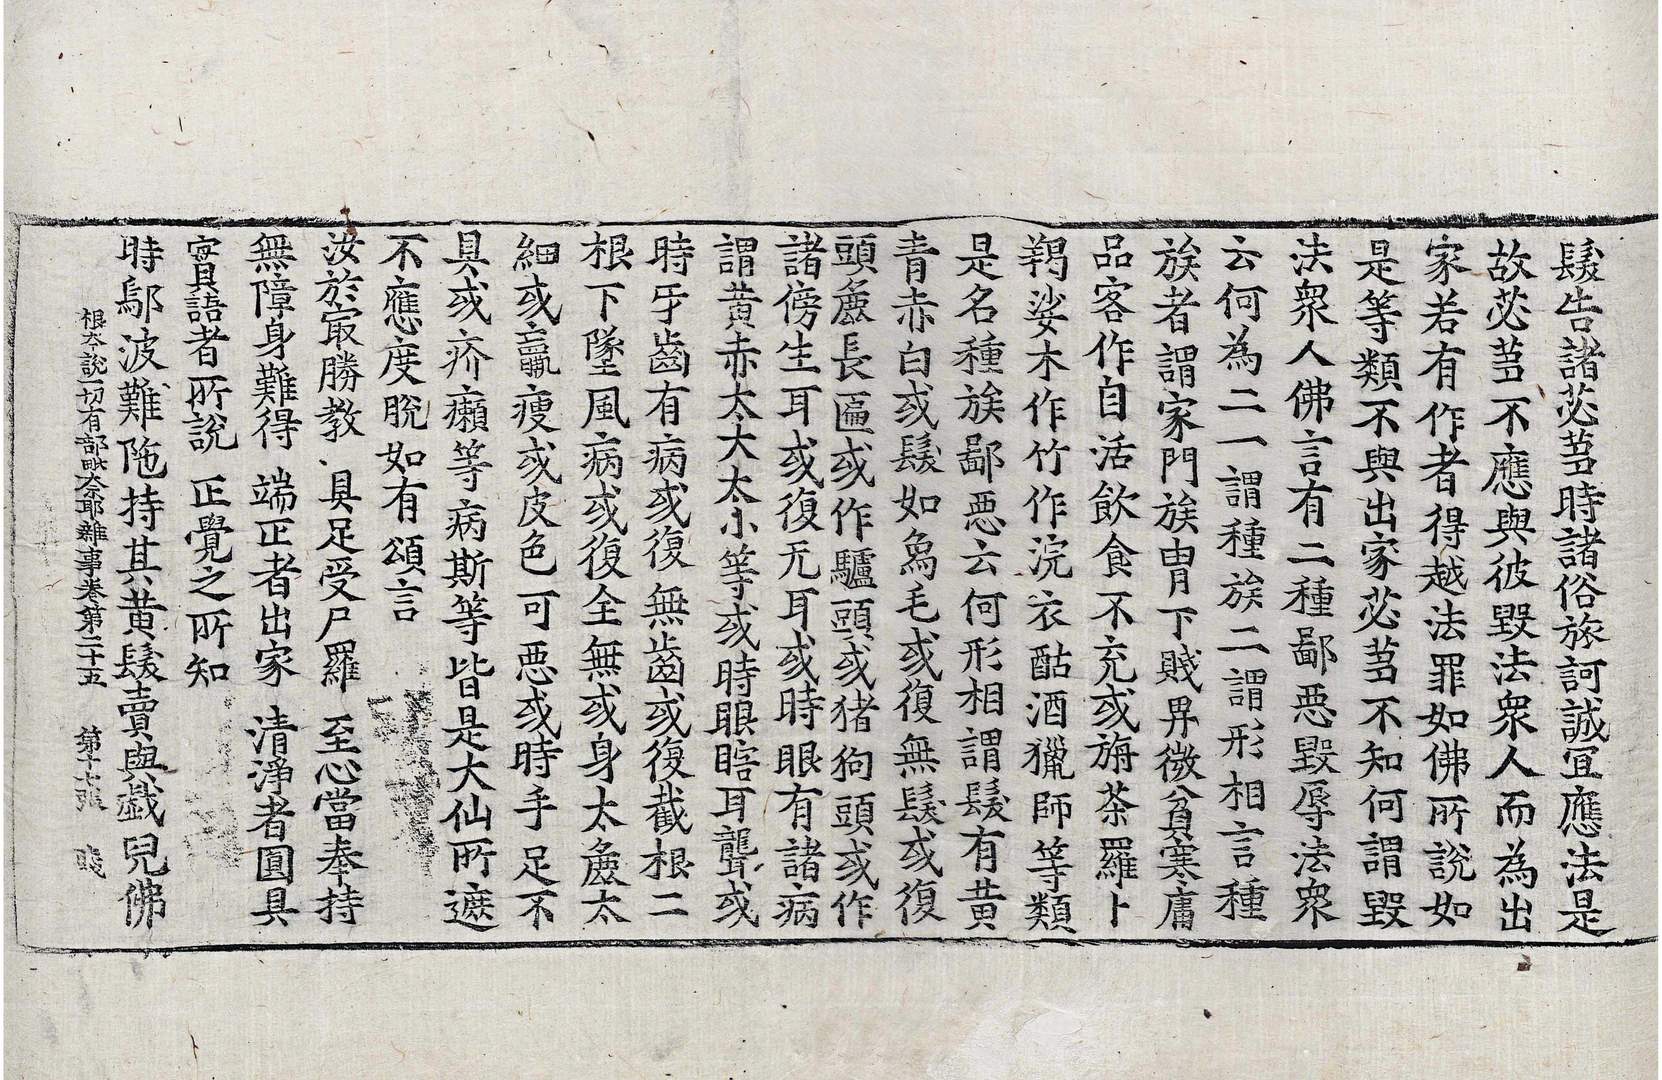 髮告諸苾芻時諸俗旅訶誠宜應法是
故苾芻不應與彼毀法衆人而為出
家若有作者得越法罪如佛所說如
是等類不與出家苾芻不知何謂毀
法衆人佛言有二種鄙惡毀辱法衆
云何為二一謂種族二謂形相言種
族者謂家門族冑下賤畀微貧寒庸
品客作自活飲食不充或旃茶羅卜
羯娑木作竹作浣衣酤酒獵師等類
是名種族鄙惡云何形相謂髮有黃
青赤白或髮如象毛或復無髮或復
頭麁長匾或作驢頭或猪狗頭或作
諸傍生耳或復无耳或時眼有諸病
謂黃赤太大太小等或時眼瞎耳聾或
時牙齒有病或復無齒或復截根二
根下墜風病或復全無或身太麁太
細或羸瘦或皮色可惡或時手足不
具或疥癩等病斯等皆是大仙所遮
不應度脫如有頌言
汝於㝡勝教 具足受尸羅 至心當奉持
無障身難得 端正者出家 清淨者圓具
實語者所說 正覺之所知
時鄔波難陁持其黃髮賣與戲兒佛
根本說一切有部毗奈耶雜事卷第二十五 第十七張